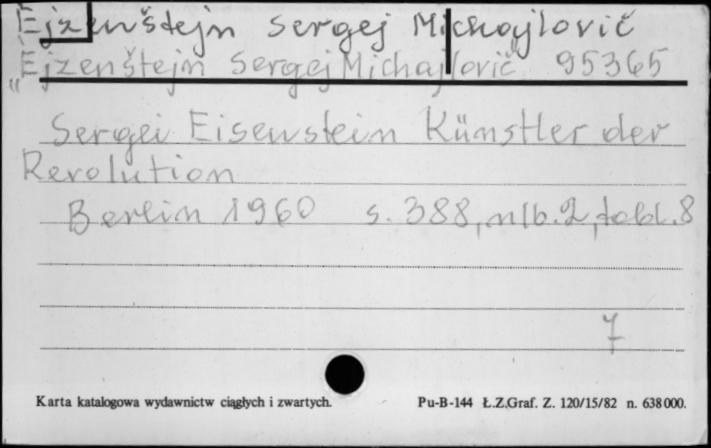 Ejzenštejn Sergej Michajlovič
"Ejzenštejn Sergej Michajlovič" 95365
Sergei Eisenstein Künstler der
Revolution
Berlin 1960 s. 388, nlb. 2, tabl. 8
7
Karta katalogowa wydawnictw ciągłych i zwartych. Pu-B-144 Ł.Z.Graf. Z. 120/15/82 n. 638000.